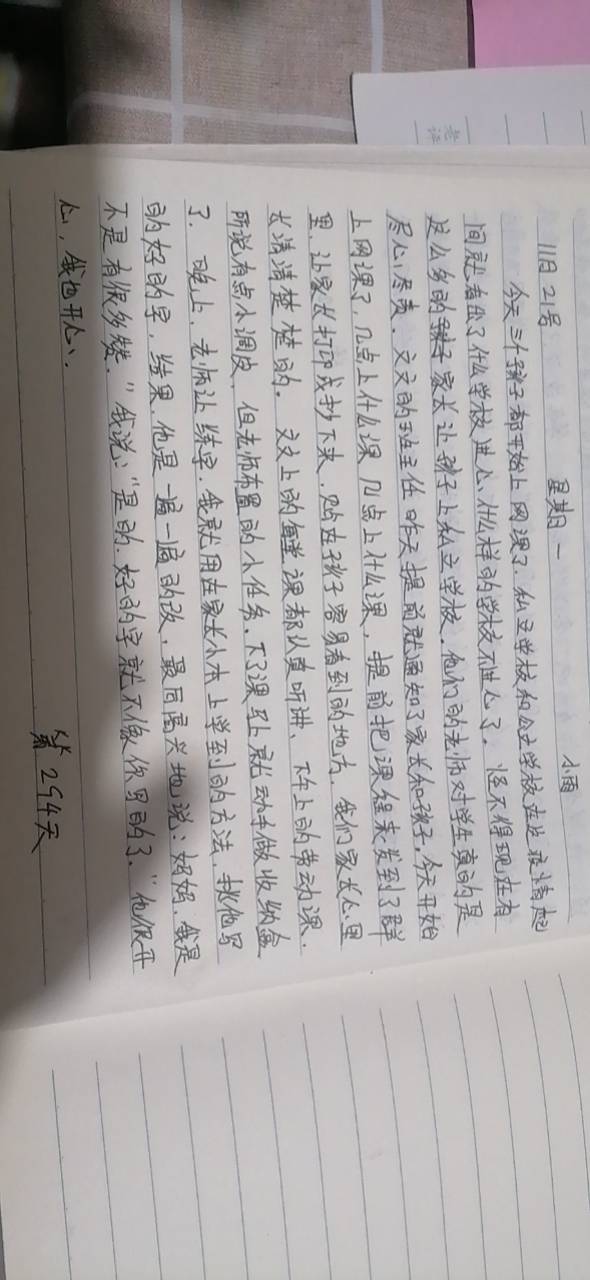 11月21号 星期一 小雨
今天三个孩子都开始上网课了.私立学校和公立学校在这疫情期
间就看出了什么学校进心,什么样的学校不进心了. 怪不得现在有
这么多的孩子家长让孩子上私立学校.他们的老师对学生真的是
尽心,尽责. 文文的班主任昨天提前就通知了家长和孩子.今天开始
上网课了,几点上什么课 几点上什么课, 提前把课程表发到了群
里,让家长打印或抄下来.贴在孩子容易看到的地方. 我们家长心里
也清清楚楚的. 文文上的每堂课都认真听讲、下午上的劳动课.
所说有点小调皮 但老师布置的小任务.下了课马上就动手做收纳盒
了. 晚上.老师让练字.我就用在家长小本上学到的方法、挑他写
的好的字, 结果.他是一遍一遍的改, 最后高兴地说:妈妈.我是
不是有很多赞."我说:"是的.好的字就不像你写的了."他很开
心,我也开心.
第294天